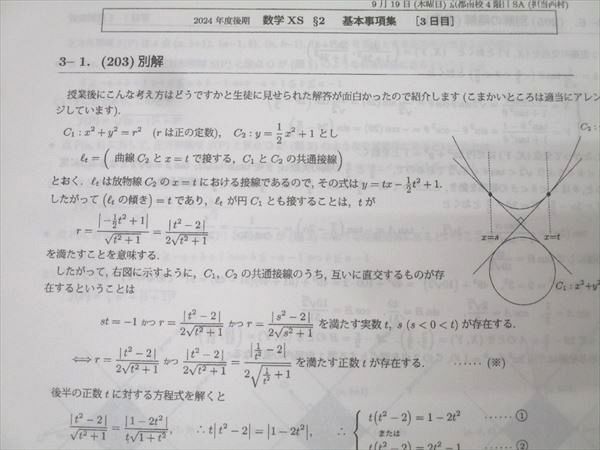 9月19日 (木曜日) 京都南校4限 SA (担当西村)
2024 年度後期 数学 XS §2 基本事項集 [3 日目]
3– 1. (203) 別解
授業後にこんな考え方はどうですかと生徒に見せられた解答が面白かったので紹介します (こまかいところは適当にアレン
ジしています).
C₁ : x² + y² = r² (r は正の定数), C₂ : y = 1/2 x² + 1 とし
ℓₜ = ( 曲線 C₂ と x = t で接する, C₁ と C₂ の共通接線 )
とおく. ℓₜ は放物線 C₂ の x = t における接線であるので, その式は y = tx − 1/2 t² + 1.
したがって (ℓₜ の傾き) = t であり, ℓₜ が円 C₁ とも接することは, t が
r = |−1/2 t² + 1| / √(t² + 1) = |t² − 2| / 2√(t² + 1)
を満たすことを意味する.
したがって, 右図に示すように, C₁, C₂ の共通接線のうち, 互いに直交するものが存
在するということは
st = −1 かつ r = |t² − 2| / 2√(t² + 1) かつ r = |s² − 2| / 2√(s² + 1) を満たす実数 t, s (s < 0 < t) が存在する.
⟺ r = |t² − 2| / 2√(t² + 1) かつ |t² − 2| / 2√(t² + 1) = |1/t² − 2| / 2√(1/t² + 1) を満たす正数 t が存在する. ······ (※)
後半の正数 t に対する方程式を解くと
|t² − 2| / √(t² + 1) = |1 − 2t²| / t√(1 + t²) ∴ t|t² − 2| = |1 − 2t²|, ∴ { t(t² − 2) = 1 − 2t² ······ ①
または
t(t² − 2) = 2t² − 1 ······ ②
C₂ :
x=s
x=t
C₁ : x²+y²